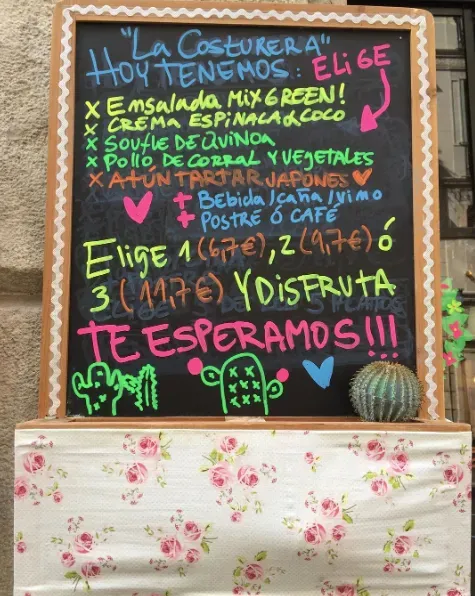 "La Costurera"
HOY TENEMOS: ELIGE
x Ensalada MIXGREEN!
x CREMA ESPINACA & COCO
x SOUFLE DE QUINOA
x Pollo DE CORRAL Y VEGETALES
x ATÚN TARTAR JAPONES
+ Bebida/caña/vino
+ POSTRE Ó CAFÉ
Elige 1 (6,7€), 2 (9,7€) ó
3 (11,7€) Y DISFRUTA
TE ESPERAMOS!!!